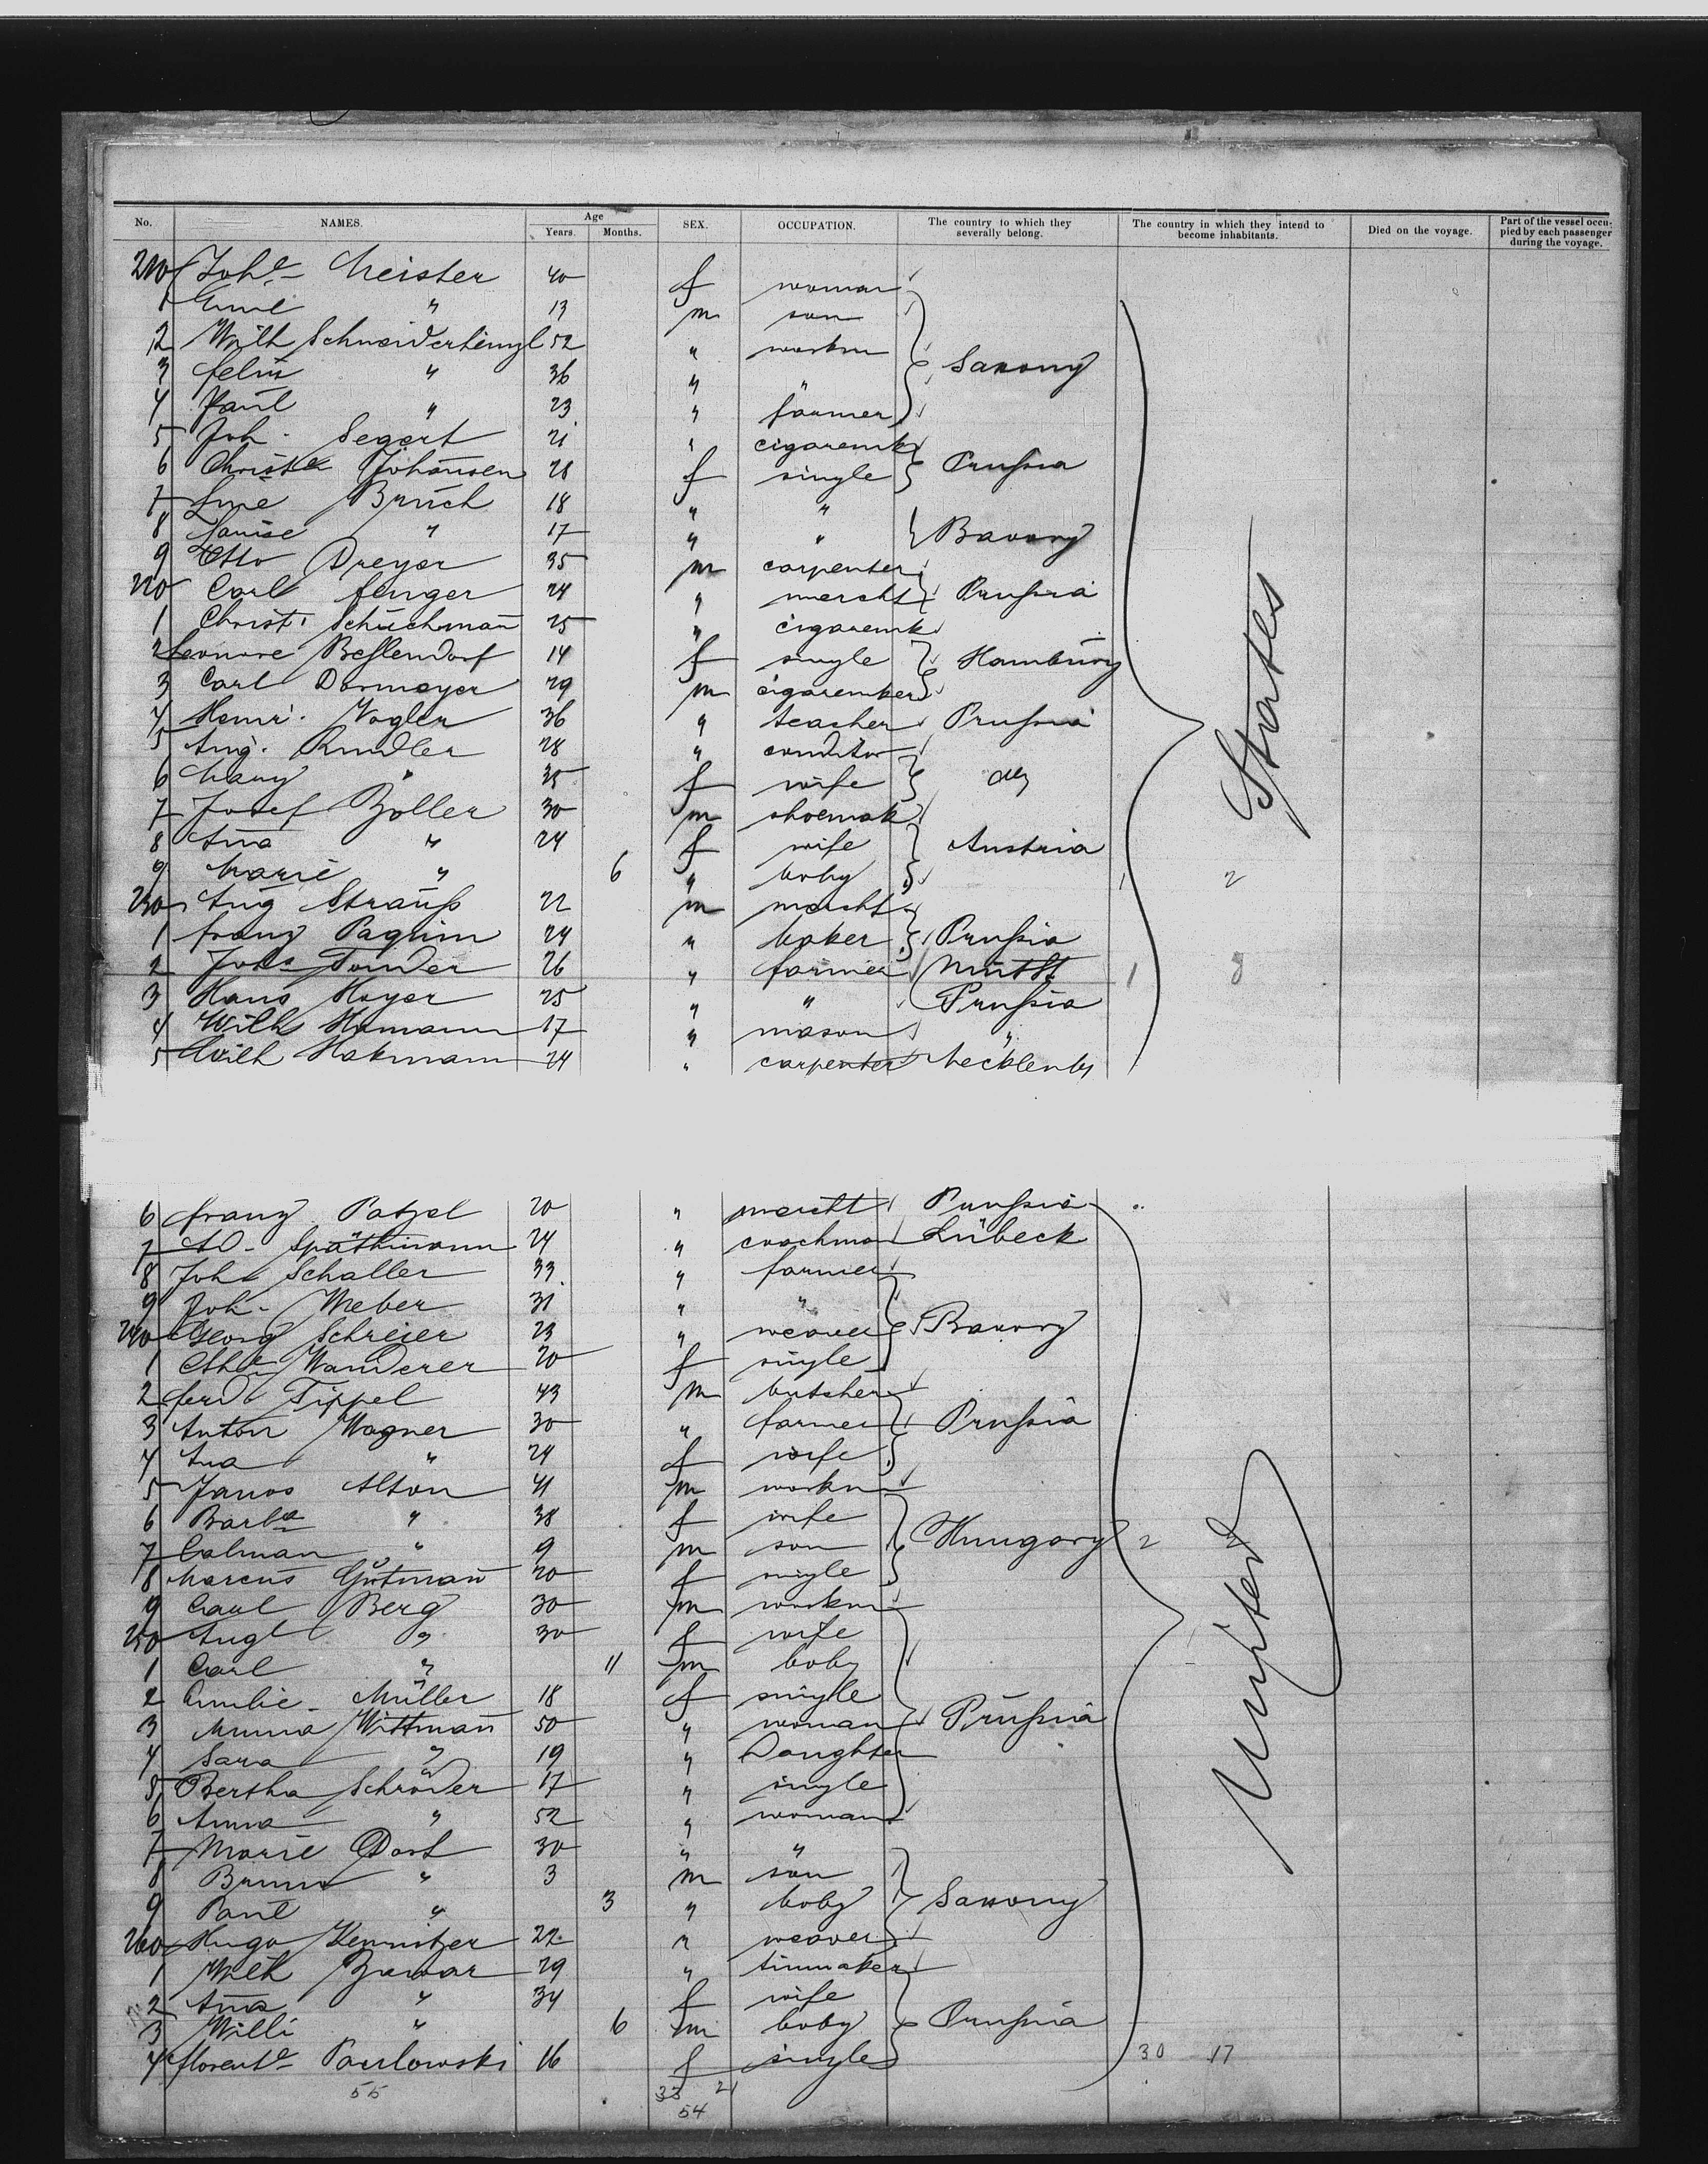 No. NAMES. Age Years. Months. SEX. OCCUPATION. The country to which they severally belong. The country in which they intend to become inhabitants. Died on the voyage. Part of the vessel occupied by each passenger during the voyage.
210 Johe Meister 40 f woman
1 Emil " 13 m son
2 Wilh 52 " workm
3 " 36 " " Saxony
4 Paul " 23 " farmer
5 Joh. Segert 21 " cigaremk
6 Christe Johansen 28 f single Prussia
7 Line Bruch 18 " "
8 Louise " 17 " " Bavary
9 Otto Dreyer 35 m carpenter
220 Carl Fenger 24 " mercht Prussia
1 Christ. Schuchmann 25 " cigaremk
2 Leonore Besslendorf 14 f single Hamburg
3 Carl Dormeyer 29 m cigaremker
4 Heinr. Vogler 36 " teacher Prussia
5 Aug. Rindler 28 " conditor
6 Mary " 35 f wife
7 Josef Zoller 30 m shoemak
8 Ana " 24 f wife Austria
9 Marie " 6 " boby 1 2
230 Aug Strauss 22 m mercht
1 Franz Paguin 24 " baker Prussia
2 Johs Tonder 26 " farmer 1 8
3 Hans Hoyer 25 " " Prussia
4 Wilh Homann 17 " mason "
5 Wilh Hakmann 24 " carpenter Mecklenbg
States
6 Franz Patzel 20 " mercht Prussia
7 Ad. Späthmann 24 " coachman Lübeck
8 Joh Schaller 33 " farmer
9 Joh. Weber 31 " "
240 Georg Schreier 23 " weaver Bavary
1 Cthe Wanderer 20 f single
2 Ferd Tippel 43 m butcher
3 Anton Wagner 30 " farmer Prussia
4 Ana " 24 f wife
5 Janos Alton 41 m workm
6 Barba " 38 f wife
7 Calman " 9 m son Hungary 2 2
8 Marcus Gutmann 20 f single
9 Carl Berg 30 m workm
250 Augt " 30 f wife
1 Carl " 11 m boby
2 Emilie Müller 18 f single
3 Minna Wittmann 50 " woman Prussia
4 Sara " 19 " Daughter
5 Bertha Schröder 17 " single
6 Anna " 52 " woman
7 Marie Dost 30 " "
8 Bruno " 3 m son
9 Paul " 3 " boby Saxony
260 Hugo Kemnitzer 22 " weaver
1 Wilh 29 " tinmaker
2 Ana " 34 f wife
3 Willi " 6 m boby Prussia
4 Florente Pawlowski 16 f single 30 17
United
55 33 21
54